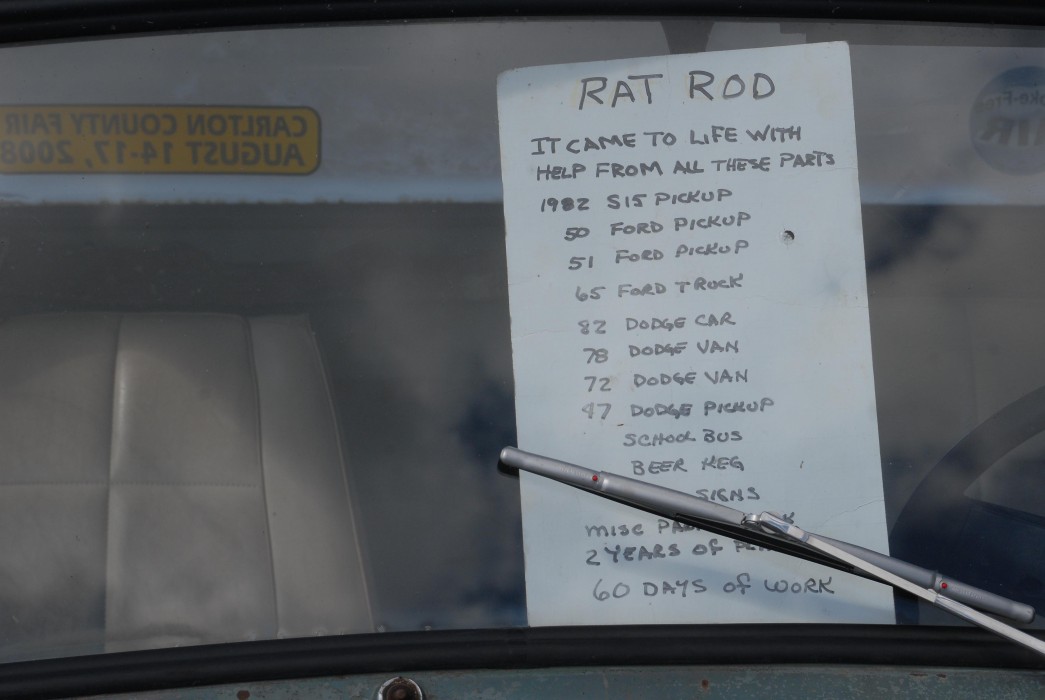 RAT ROD
IT CAME TO LIFE WITH
HELP FROM ALL THESE PARTS
1982 S15 PICKUP
50 FORD PICKUP
51 FORD PICKUP
65 FORD TRUCK
82 DODGE CAR
78 DODGE VAN
72 DODGE VAN
47 DODGE PICKUP
SCHOOL BUS
BEER KEG
SIGNS
misc
2 YEARS OF
60 DAYS OF WORK
CARLTON COUNTY FAIR
AUGUST 14-17, 2008